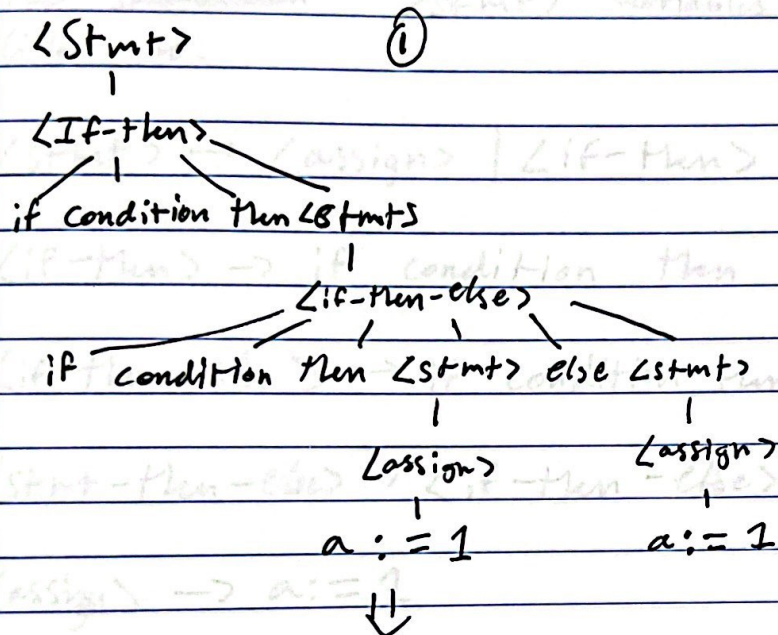 <Stmt> ①
<If-then>
if condition then <Stmt>
<if-then-else>
if condition then <stmt> else <stmt>
<assign> <assign>
a := 1 a := 1
⇓